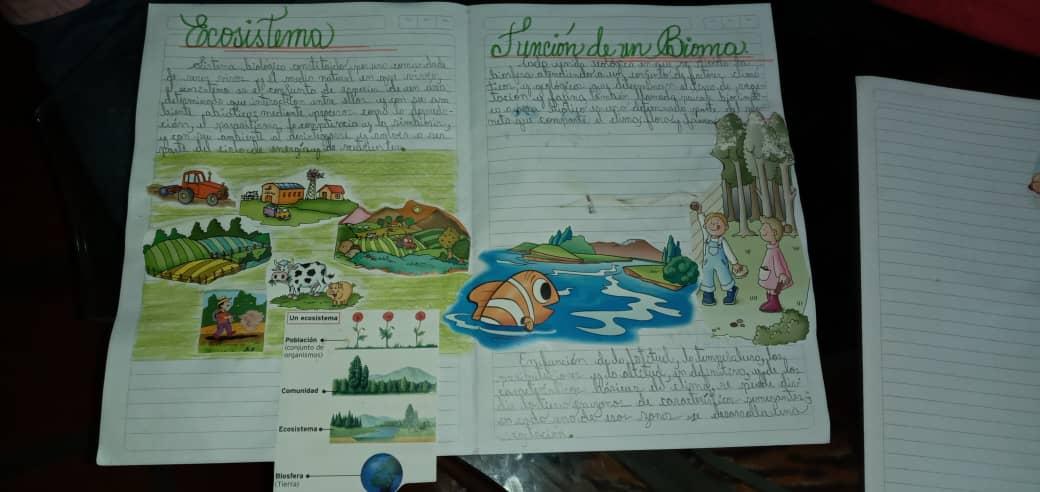 Ecosistema
Sistema biológico constituido por una comunidad
de seres vivos y el medio natural en que viven,
el ecosistema es el conjunto de especies de un área
determinada que interactúan entre ellas y con su am
biente abiótico; mediante procesos como la depreda
ción, el parasitismo, la competencia y la simbiosis,
y con su ambiente al desintegrarse y volver a ser
parte del ciclo de energía y de nutrientes.
Un ecosistema
Población
(conjunto de
organismos)
Comunidad
Ecosistema
Biosfera
(Tierra)
Función de un Bioma
cada unidad ecológica en que se divide la
biosfera atendiendo a un conjunto de factores climá
ticos y geológicos que determinan el tipo de vege
tación y fauna también llamado paisaje bioclimáti
co o área biótica y es una determinada parte del pla
neta que comparte el clima, flora y fauna.
En función de la latitud, la temperatura, las
precipitaciones y la altitud, en definitiva, y de las
características básicas del clima, se puede divi
dir la tierra en zonas de características semejantes;
en cada una de esas zonas se desarrolla una
vegetación.